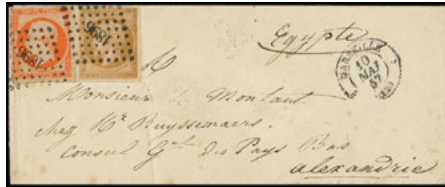 1896
1896
Egypte
MARSEILLE
10
MAI
57
Monsieur de Montaut
chez Mr Ruyssenaers.
Consul Gal des Pays Bas
alexandrie